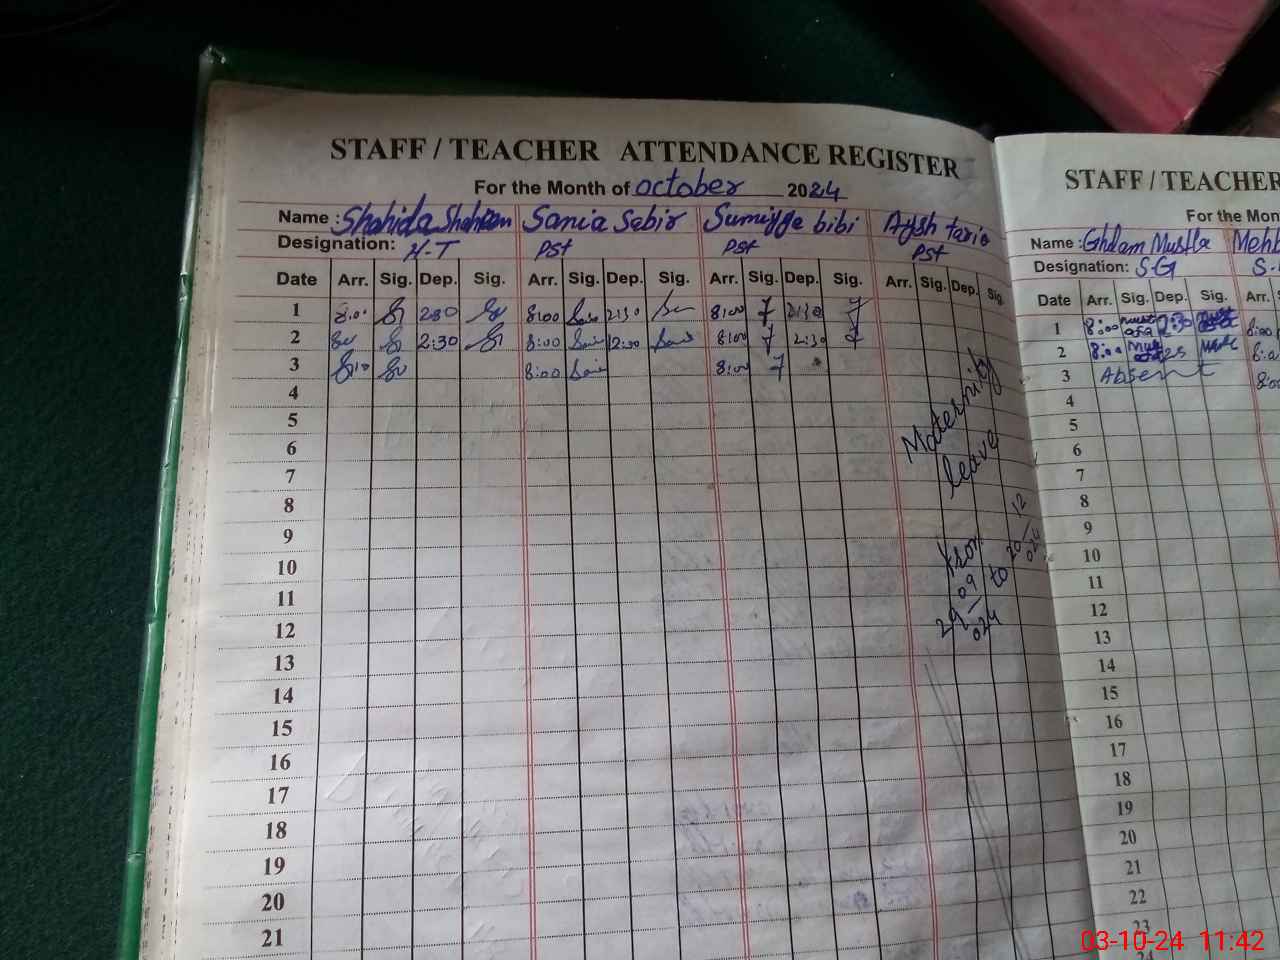 STAFF / TEACHER ATTENDANCE REGISTER
For the Month of october 2024
Name : Shahida Sania Sabir Sumiyya bibi Aysh tariq
Designation: H-T PST PST PST
Date Arr. Sig. Dep. Sig. Arr. Sig. Dep. Sig. Arr. Sig. Dep. Sig. Arr. Sig. Dep. Sig.
1 8:00 2:30 8:00 2:30 8:00 2:30
2 2:30 8:00 2:30 8:00 2:30
3 8:00 8:00
4
5
6
7
8
9
10
11
12
13
14
15
16
17
18
19
20
21
Maternity
leave
from
29/09/024 to 20/12/024
STAFF / TEACHER
For the Mon
Name : Ghulam Mustfa Mehb
Designation: S-G S-
Date Arr. Sig. Dep. Sig. Arr.
1 8:00 2:30 8:00
2 8:00
3 Absent 8:00
4
5
6
7
8
9
10
11
12
13
14
15
16
17
18
19
20
21
22
23
24
03-10-24 11:42